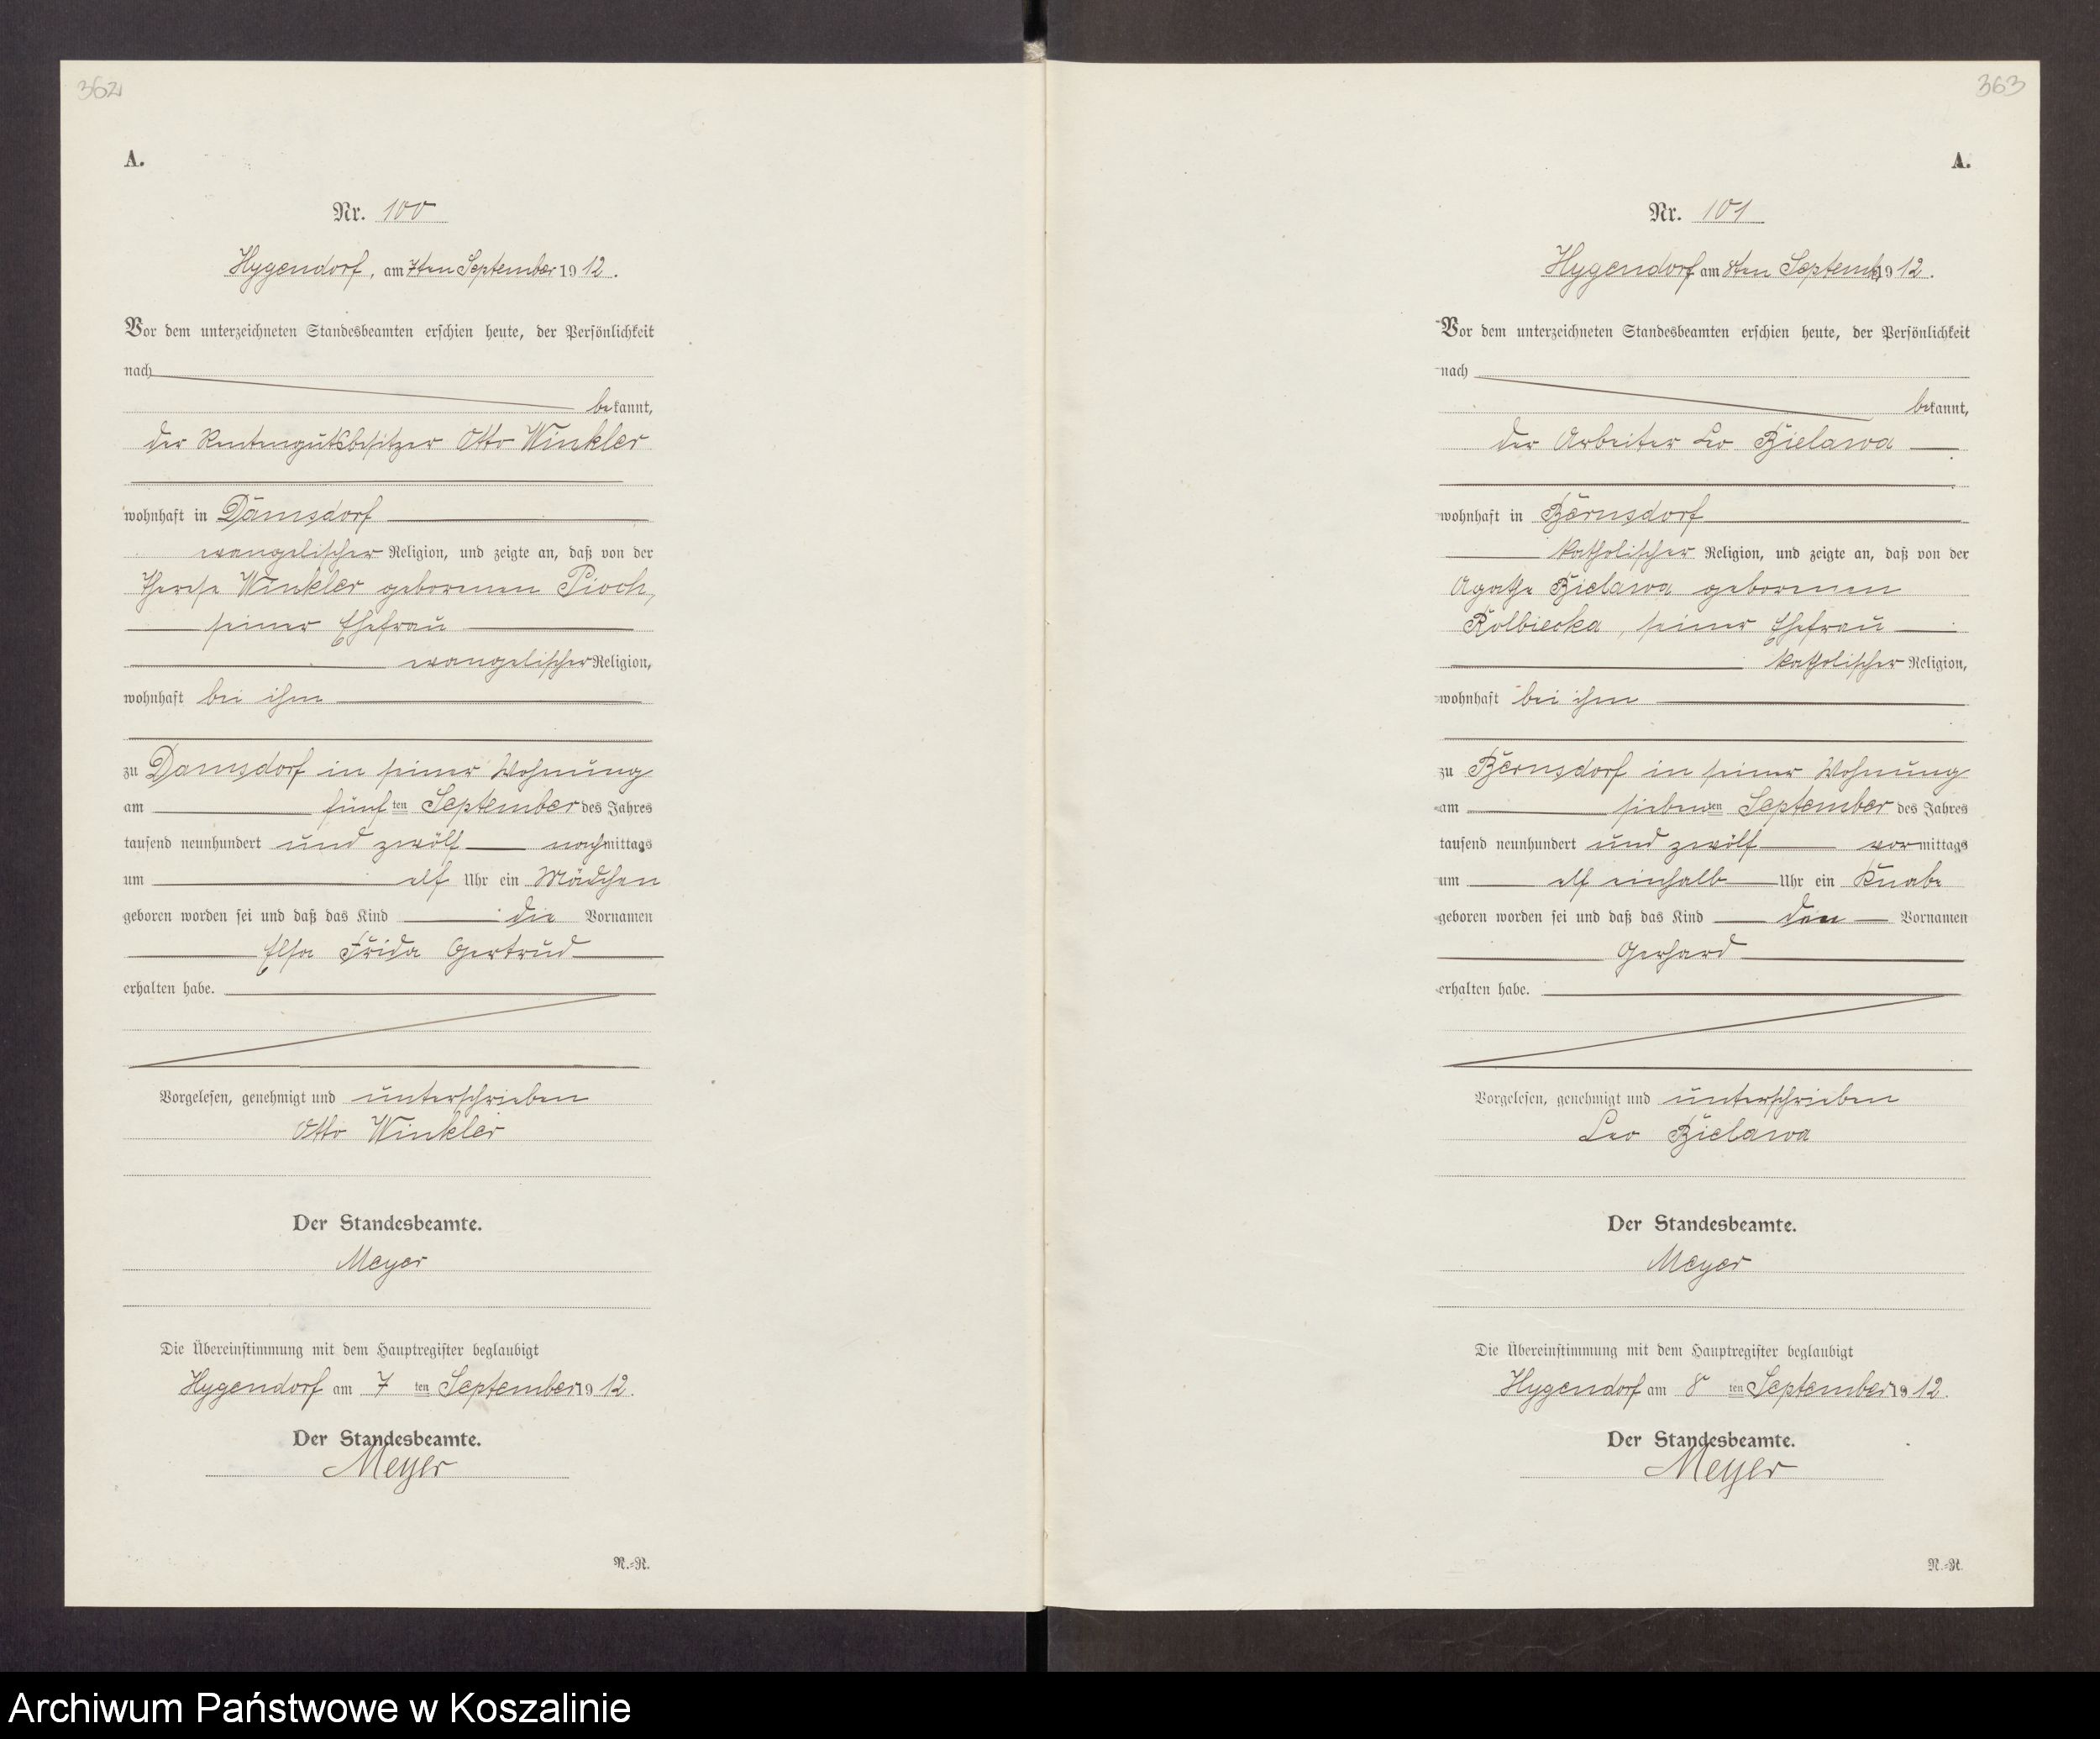 362
A.
Nr. 100
Hygendorf, am 7ten September 1912.
Vor dem unterzeichneten Standesbeamten erschien heute, der Persönlichkeit
nach
bekannt,
der Rentengutsbesitzer Otto Winkler
wohnhaft in Damsdorf
evangelischer Religion, und zeigte an, daß von der
Therese Winkler geborenen Pioch,
seiner Ehefrau
evangelischer Religion,
wohnhaft bei ihm
zu Damsdorf in seiner Wohnung
am fünften September des Jahres
tausend neunhundert und zwölf nachmittags
um elf Uhr ein Mädchen
geboren worden sei und daß das Kind die Vornamen
Elsa Frida Gertrud
erhalten habe.
Vorgelesen, genehmigt und unterschrieben
Otto Winkler
Der Standesbeamte.
Meyer
Die Übereinstimmung mit dem Hauptregister beglaubigt
Hygendorf am 7ten September 1912.
Der Standesbeamte.
Meyer
N.=R.
363
A.
Nr. 101
Hygendorf am 8ten Septemb 1912.
Vor dem unterzeichneten Standesbeamten erschien heute, der Persönlichkeit
nach
bekannt,
der Arbeiter Leo Bielawa
wohnhaft in Bernsdorf
katholischer Religion, und zeigte an, daß von der
Agathe Bielawa geborenen
Kolbiecka, seiner Ehefrau
katholischer Religion,
wohnhaft bei ihm
zu Bernsdorf in seiner Wohnung
am siebenten September des Jahres
tausend neunhundert und zwölf vormittags
um elf einhalb Uhr ein Knabe
geboren worden sei und daß das Kind den Vornamen
Gerhard
erhalten habe.
Vorgelesen, genehmigt und unterschrieben
Leo Bielawa
Der Standesbeamte.
Meyer
Die Übereinstimmung mit dem Hauptregister beglaubigt
Hygendorf am 8ten September 1912.
Der Standesbeamte.
Meyer
N.=R.
Archiwum Państwowe w Koszalinie